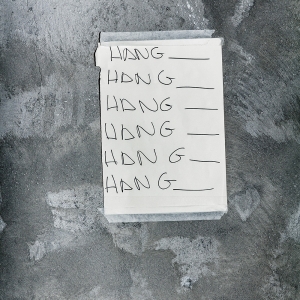 HANG ___
HANG ___
HANG ___
HANG ___
HANG ___
HANG ___